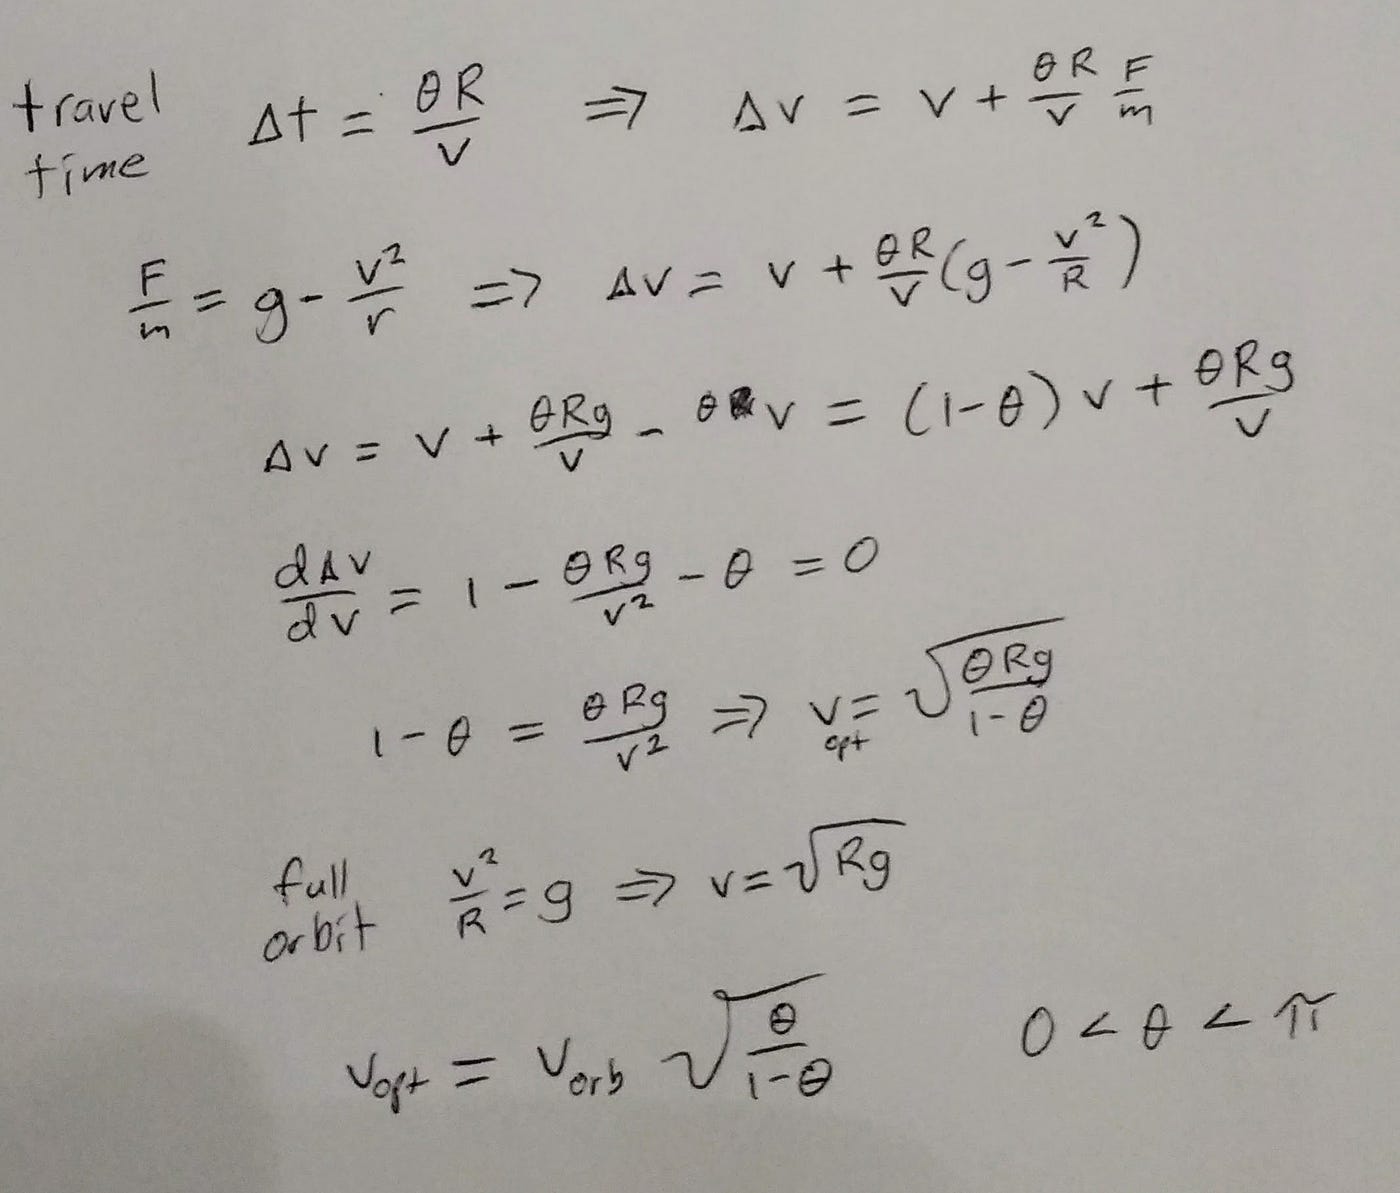 travel time Δt = θR/v ⇒ Δv = v + θR/v F/m
F/m = g - v²/r => Δv = v + θR/v (g - v²/R)
Δv = v + θRg/v - θv = (1-θ) v + θRg/v
dΔv/dv = 1 - θRg/v² - θ = 0
1-θ = θRg/v² ⇒ v_opt = √(θRg/1-θ)
full orbit v²/R = g ⇒ v = √Rg
v_opt = v_orb √(θ/1-θ) 0 < θ < π